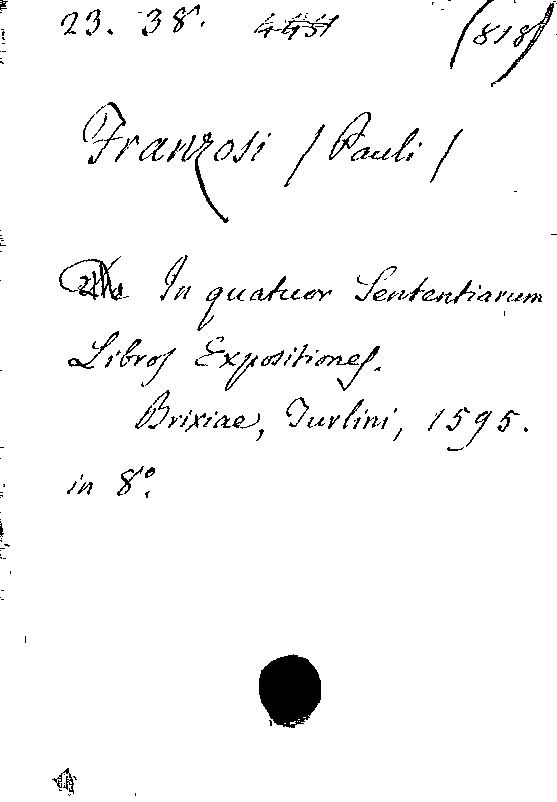 23. 38. (818)
Franzosi / Pauli /
In quatuor Sententiarum
Libros Expositiones.
Brixiae, Turlini, 1595.
in 8º.